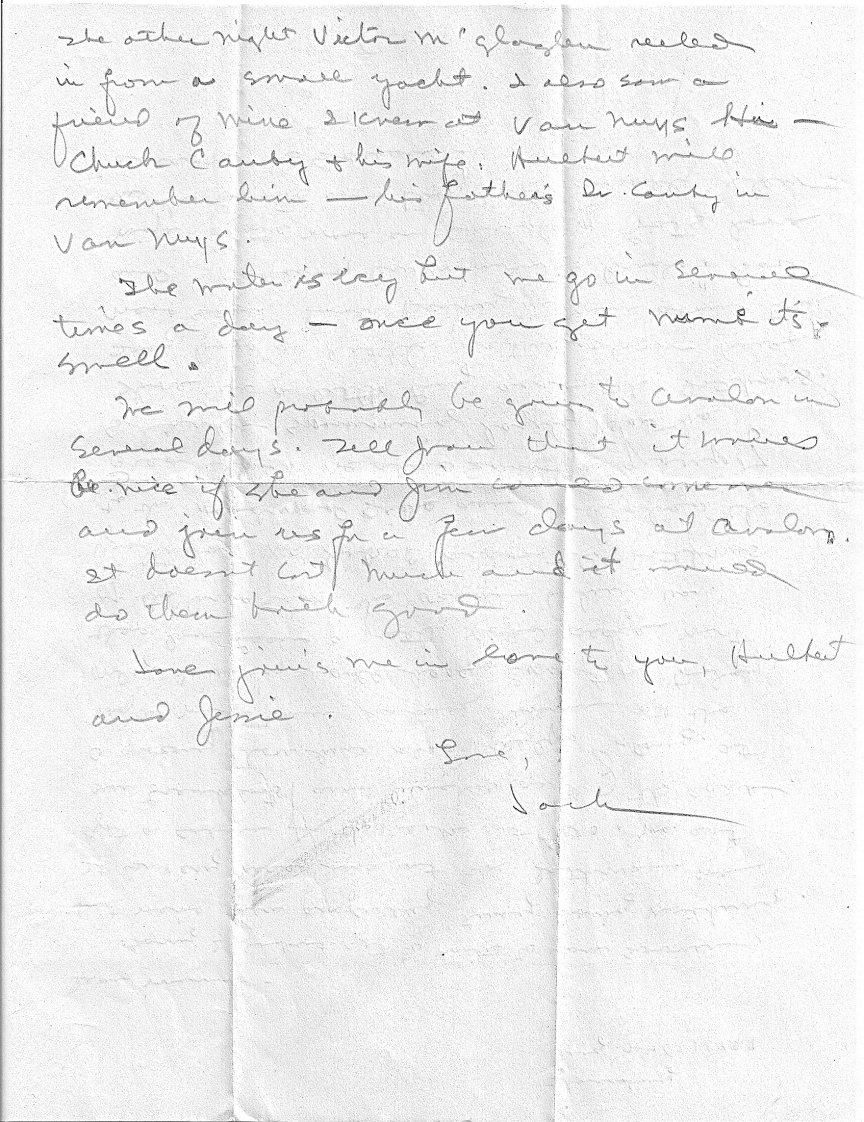 The other night Victor McGlaglen reeled
in from a small yacht. I also saw a
friend of mine I knew at Van Nuys Hi —
Chuck Canby & his wife. Hulbert will
remember him — his father's Dr. Canby in
Van Nuys.
The water is icy but we go in several
times a day — once you get numb it's
swell.
We will probably be going to Avalon in
several days. Tell Fran that it would
be nice if she and Jim could come over
and join us for a few days at Avalon.
It doesn't cost much and it would
do them both good.
Jane join's me in love to you, Hulbert
and Jessie.
Love,
Jack